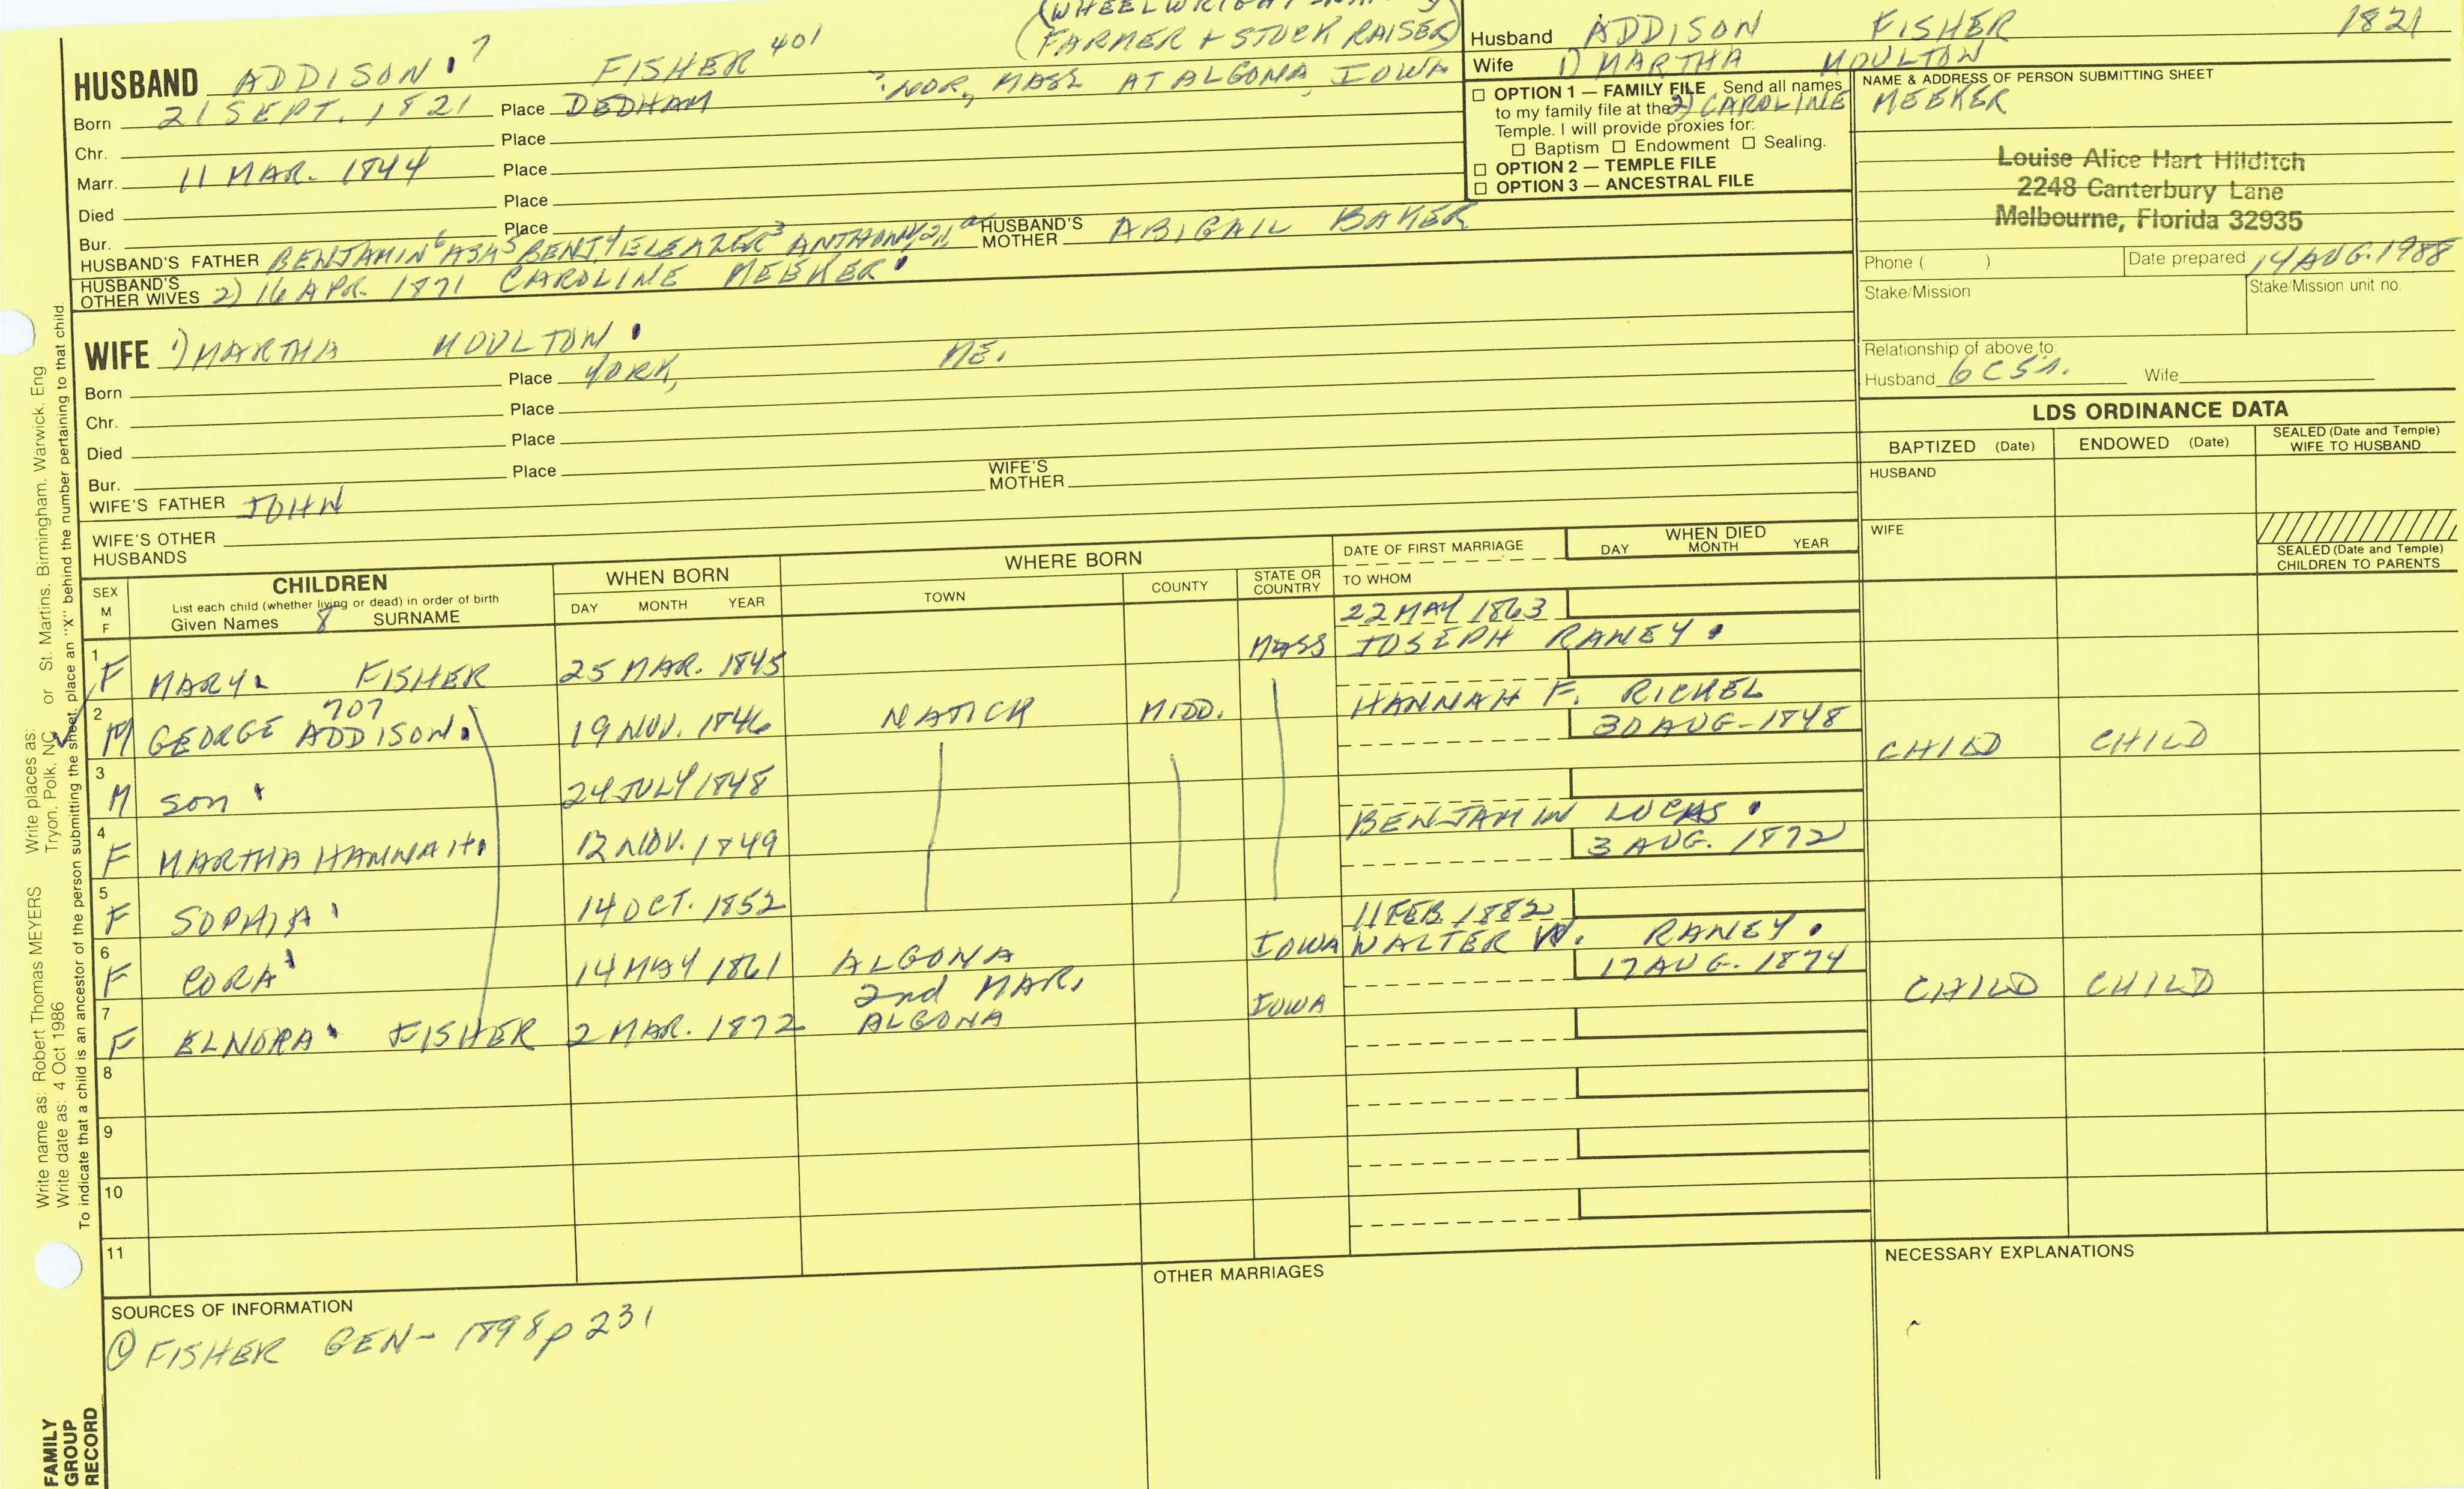 (FARMER + STOCK RAISER)
HUSBAND ADDISON 7 FISHER 401
NOR, MASS AT ALGONA, IOWA
Born 21 SEPT. 1821 Place DEDHAM
Chr. Place
Marr. 11 MAR. 1844 Place
Died Place
Bur. Place
HUSBAND'S FATHER BENJAMIN 6 ASA 5 BENJ 4 ELEAZER 3 ANTHONY 2,1 HUSBAND'S MOTHER ABIGAIL BAKER
HUSBAND'S OTHER WIVES 2) 16 APR. 1871 CAROLINE MEEKER
Husband ADDISON FISHER 1821
Wife 1) MARTHA MOULTON
2) CAROLINE MEEKER
□ OPTION 1 — FAMILY FILE Send all names
to my family file at the
Temple. I will provide proxies for:
□ Baptism □ Endowment □ Sealing.
□ OPTION 2 — TEMPLE FILE
□ OPTION 3 — ANCESTRAL FILE
NAME & ADDRESS OF PERSON SUBMITTING SHEET
Louise Alice Hart Hilditch
2248 Canterbury Lane
Melbourne, Florida 32935
Phone ( ) Date prepared 14 AUG. 1988
Stake/Mission Stake/Mission unit no.
Relationship of above to:
Husband 6C5r. Wife
WIFE 1) MARTHA MOULTON
Born Place YORK, ME.
Chr. Place
Died Place
Bur. Place
WIFE'S FATHER JOHN WIFE'S MOTHER
WIFE'S OTHER HUSBANDS
LDS ORDINANCE DATA
BAPTIZED (Date) ENDOWED (Date) SEALED (Date and Temple) WIFE TO HUSBAND
HUSBAND
WIFE
SEALED (Date and Temple) CHILDREN TO PARENTS
SEX M F
CHILDREN
List each child (whether living or dead) in order of birth
Given Names 8 SURNAME
WHEN BORN DAY MONTH YEAR
WHERE BORN TOWN COUNTY STATE OR COUNTRY
DATE OF FIRST MARRIAGE
TO WHOM
WHEN DIED DAY MONTH YEAR
22 MAY 1863
1 F MARY FISHER 25 MAR. 1845 MASS JOSEPH RANEY
707
2 M GEORGE ADDISON 19 NOV. 1846 NATICK MIDD. HANNAH F. RICKEL
30 AUG - 1848
3 M son 24 JULY 1848 CHILD CHILD
4 F MARTHA HANNAH 12 NOV. 1849 BENJAMIN LUCAS
3 AUG. 1872
5 F SOPHIA 14 OCT. 1852
11 FEB. 1882
6 F CORA 14 MAY 1861 ALGONA IOWA WALTER W. RANEY
2nd MAR.
17 AUG. 1874
7 F ELNORA FISHER 2 MAR. 1872 ALGONA IOWA CHILD CHILD
8
9
10
11
SOURCES OF INFORMATION
① FISHER GEN - 1898 p 231
OTHER MARRIAGES
NECESSARY EXPLANATIONS
Write name as: Robert Thomas MEYERS Write places as:
Write date as: 4 Oct 1986 Tryon, Polk, NC or St. Martins, Birmingham, Warwick, Eng.
To indicate that a child is an ancestor of the person submitting the sheet, place an "X" behind the number pertaining to that child.
FAMILY
GROUP
RECORD